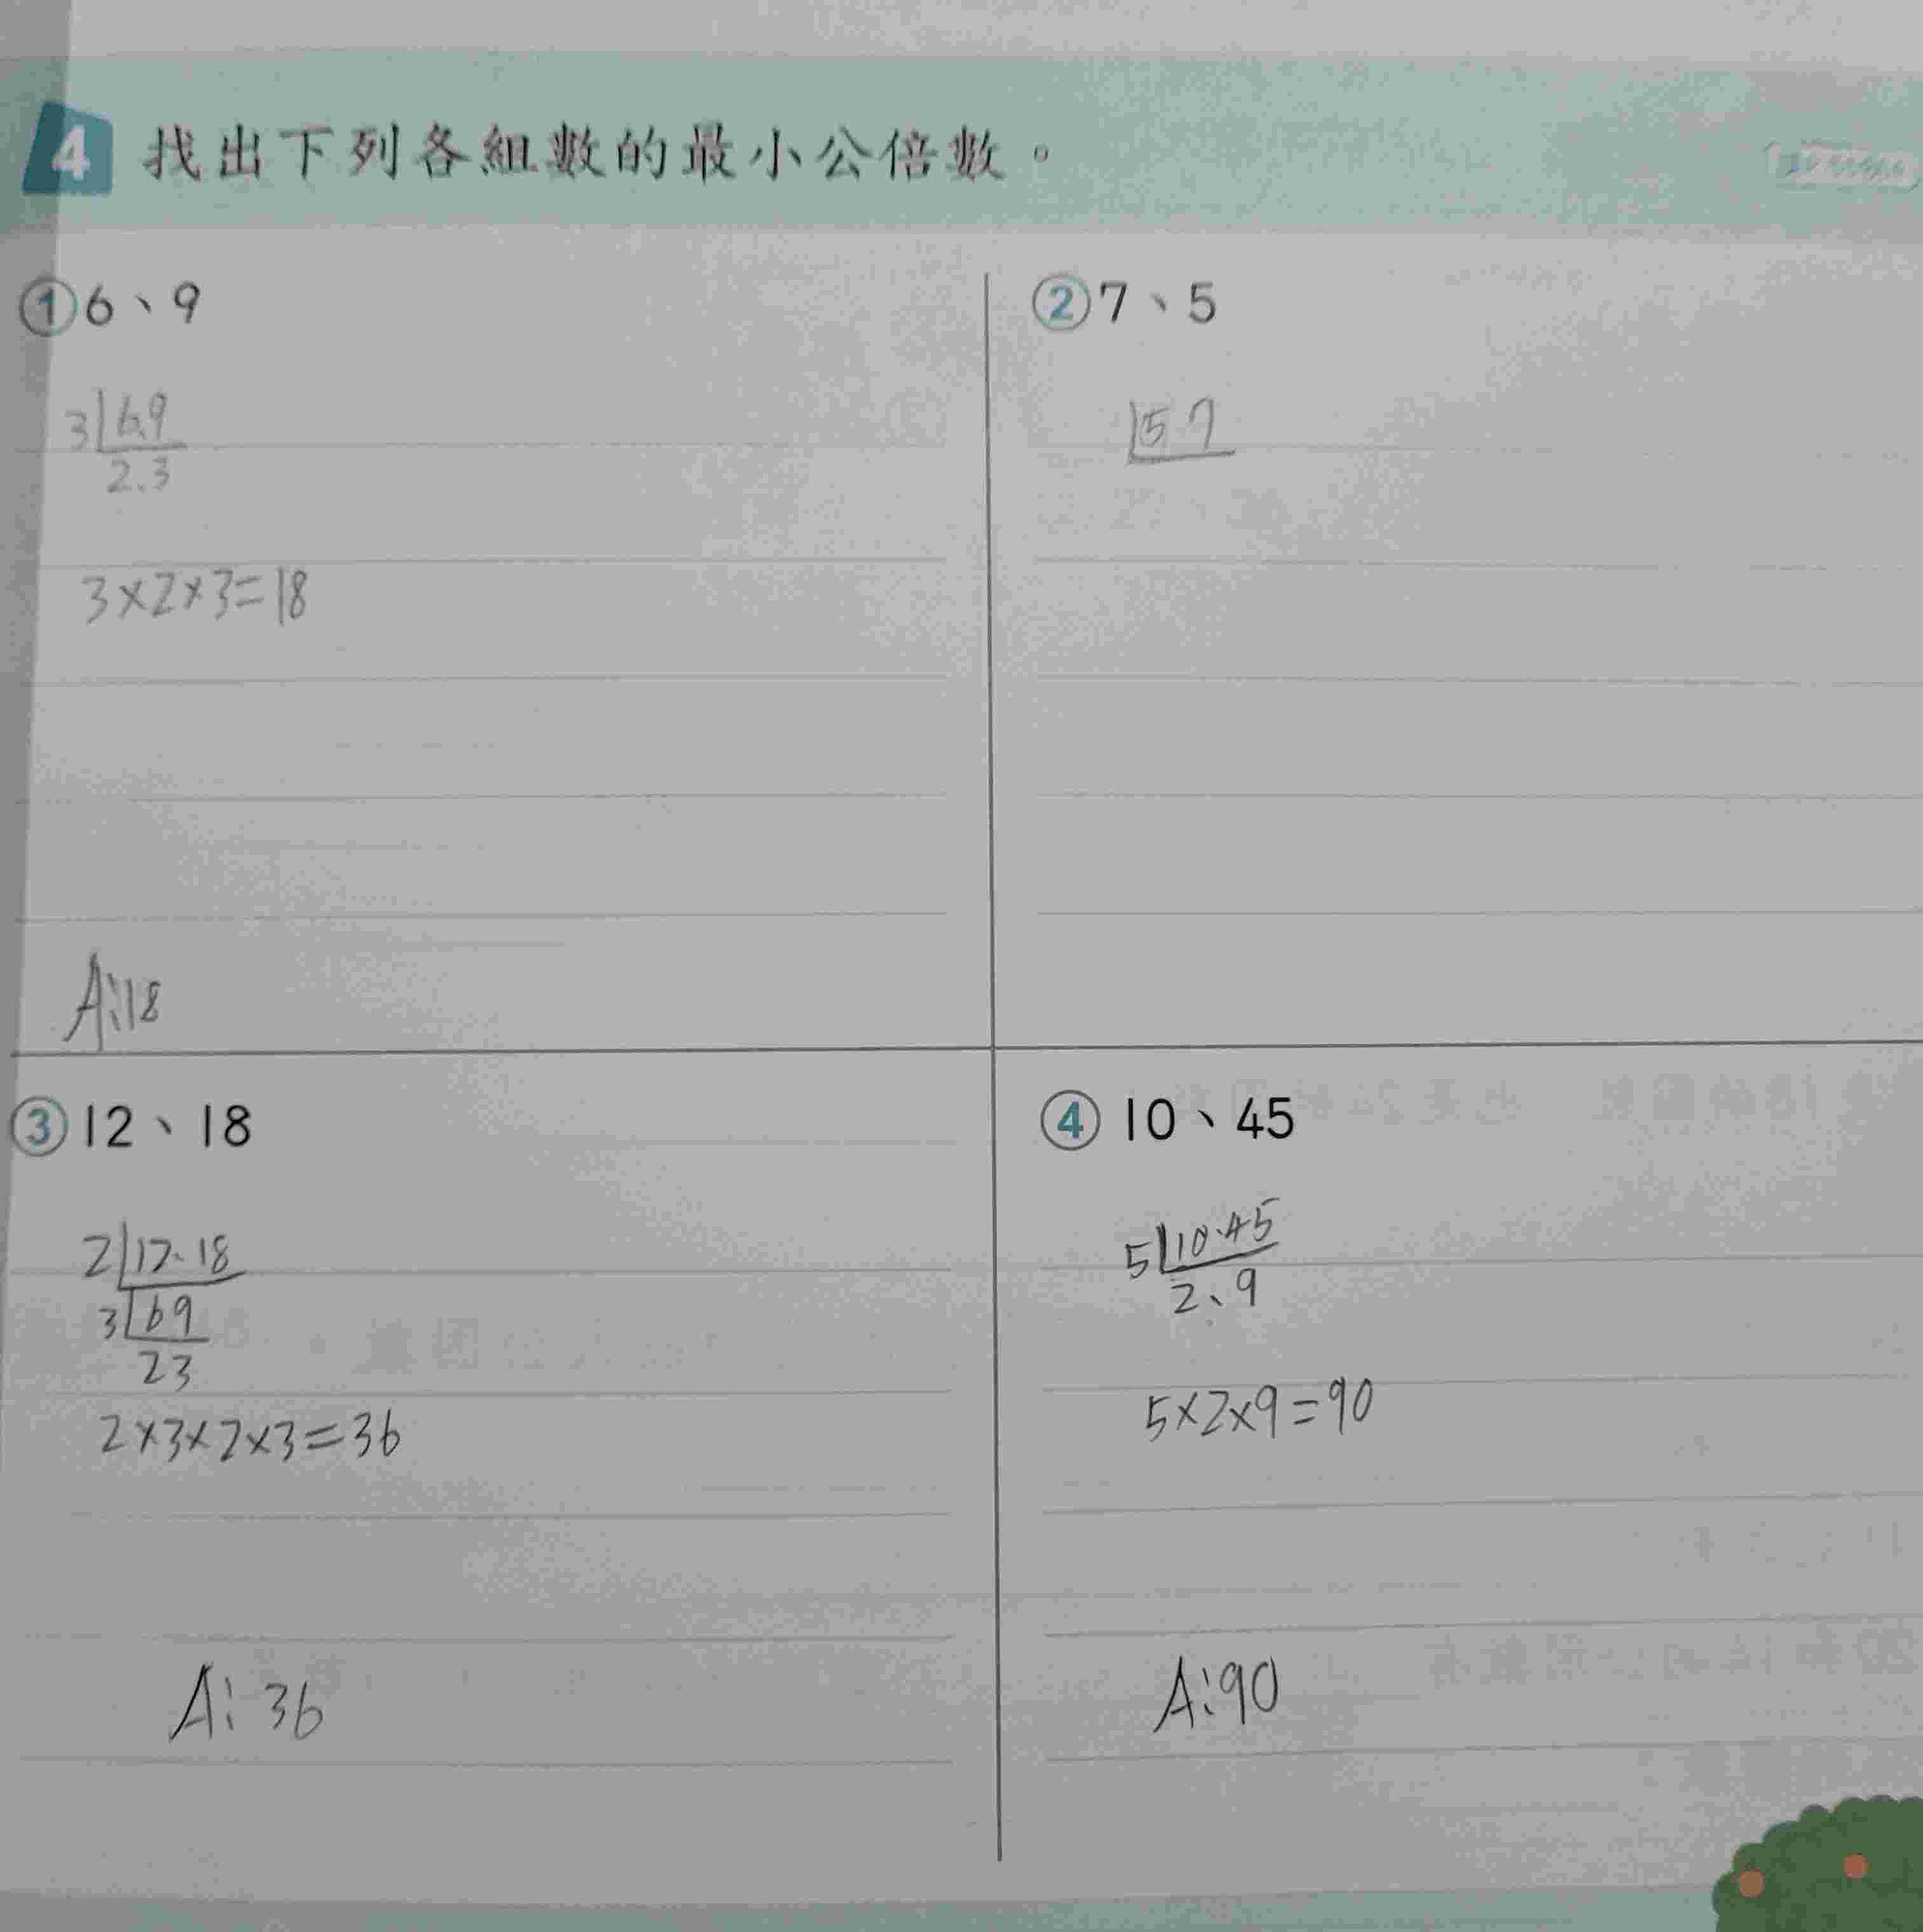 4 找出下列各組數的最小公倍數。
①6、9
3 6.9
2.3
3×2×3=18
A:18
②7、5
5 7
③12、18
2 12、18
3 69
23
2×3×2×3=36
A:36
④10、45
5 10、45
2、9
5×2×9=90
A:90